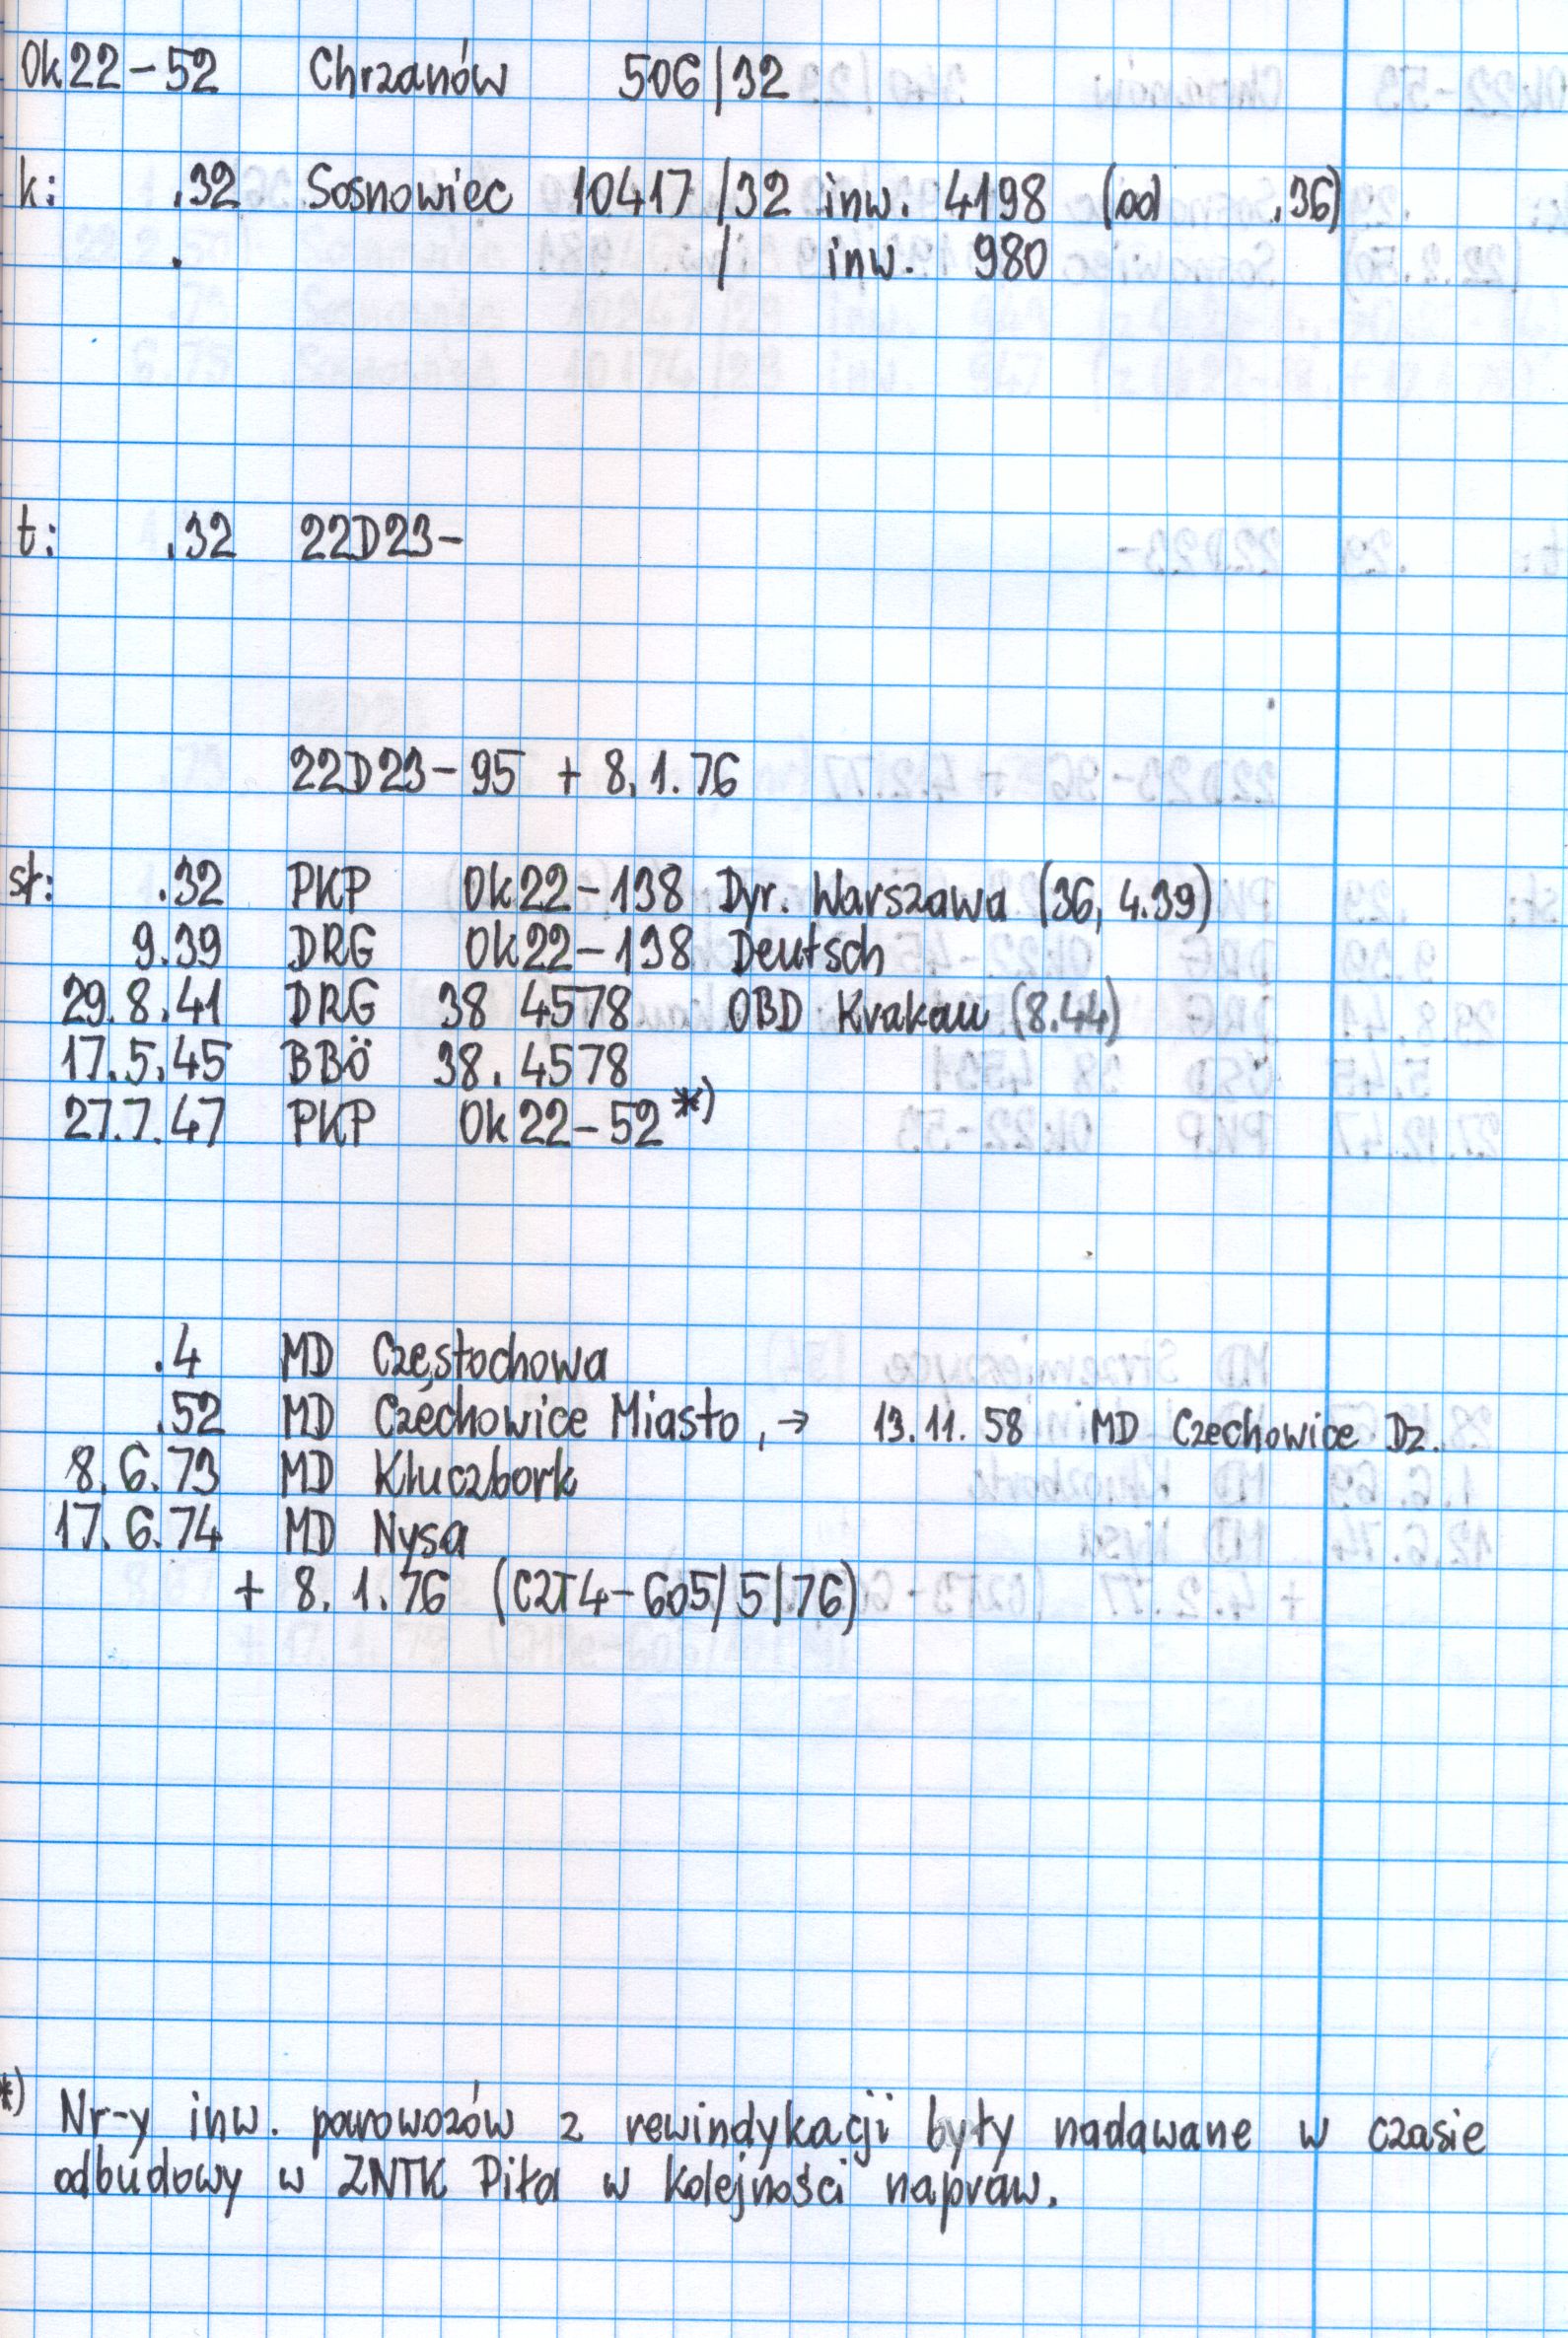 Ok22-52 Chrzanów 506/32
k: .32 Sosnowiec 10417/32 inw. 4198 (od .36)
. / inw. 980
t: .32 22D23-
22D23-95 + 8.1.76
sł: .32 PKP Ok22-138 Dyr. Warszawa (36, 4.39)
9.39 DRG Ok22-138 Deutsch
29.8.41 DRG 38 4578 OBD Krakau (8.44)
17.5.45 BBÖ 38.4578
27.7.47 PKP Ok22-52 *)
.4 MD Częstochowa
.52 MD Czechowice Miasto, → 13.11.58 MD Czechowice Dz.
8.6.73 MD Kluczbork
17.6.74 MD Nysa
+ 8.1.76 (C2T4-605/5/76)
*) Nr-y inw. parowozów z rewindykacji były nadawane w czasie
odbudowy w ZNTK Piła w kolejności napraw.